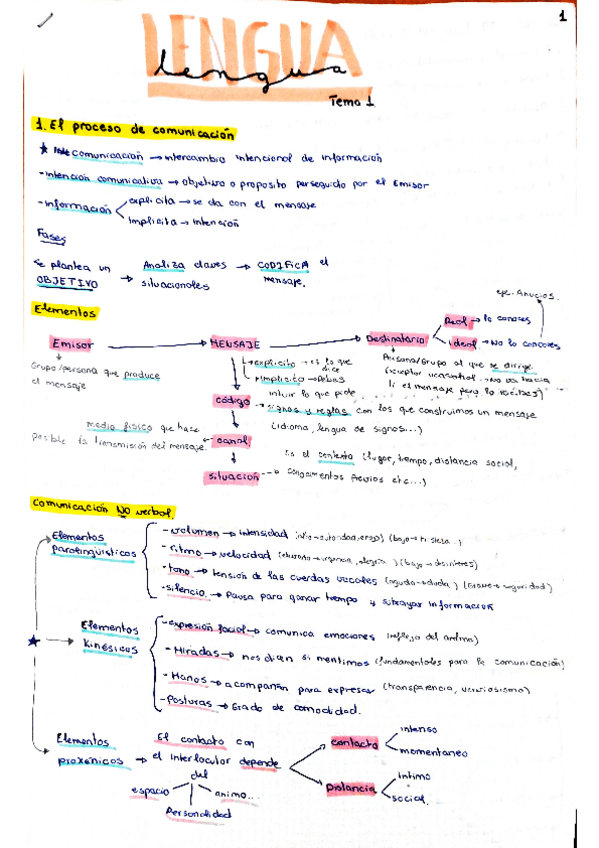 1
LENGUA
lengua
Tema 1
1. El proceso de comunicación
★ comunicación → intercambio intencional de información
- Intención comunicativa → objetivo o proposito perseguido por el Emisor
- Información
explicita → se da con el mensaje
Implicita → Intención
Fases
Se plantea un OBJETIVO → Analiza claves situacionales → CODIFICA el mensaje.
eje. Anucios.
Elementos
Emisor → MENSAJE → Destinatario
Real → lo conoces
ideal → No lo conoces
Grupo/persona que produce el mensaje
explicito → es lo que dice
Implicito → Debas intuir lo que pide
Persona/Grupo al que se dirige.
código → signos y reglas con los que construimos un mensaje
(idioma, lengua de signos...)
medio físico que hace posible la transmisión del mensaje. ← canal
situación --→ Es el contexto (lugar, tiempo, distancia social,
conocimentos previos etc...)
Comunicación NO verbal
Elementos paralingüísticos
- volumen → intensidad
- ritmo → velocidad
- tono → tensión de las cuerdas vocales
- silencio → Pausa para ganar tiempo y subrayar informacion
★ → Elementos Kinésicos
- expresión facial → comunica emociones (reflejo del animo)
- Miradas → nos dicen si mentimos (fundamentales para la comunicación)
- Manos → acompañan para expresar
- Posturas → Grado de comodidad.
Elementos proxénicos → El contacto con el interlocutor depende del
espacio
Personalidad
animo...
contacto
intenso
momentaneo
Distancia
íntimo
social.